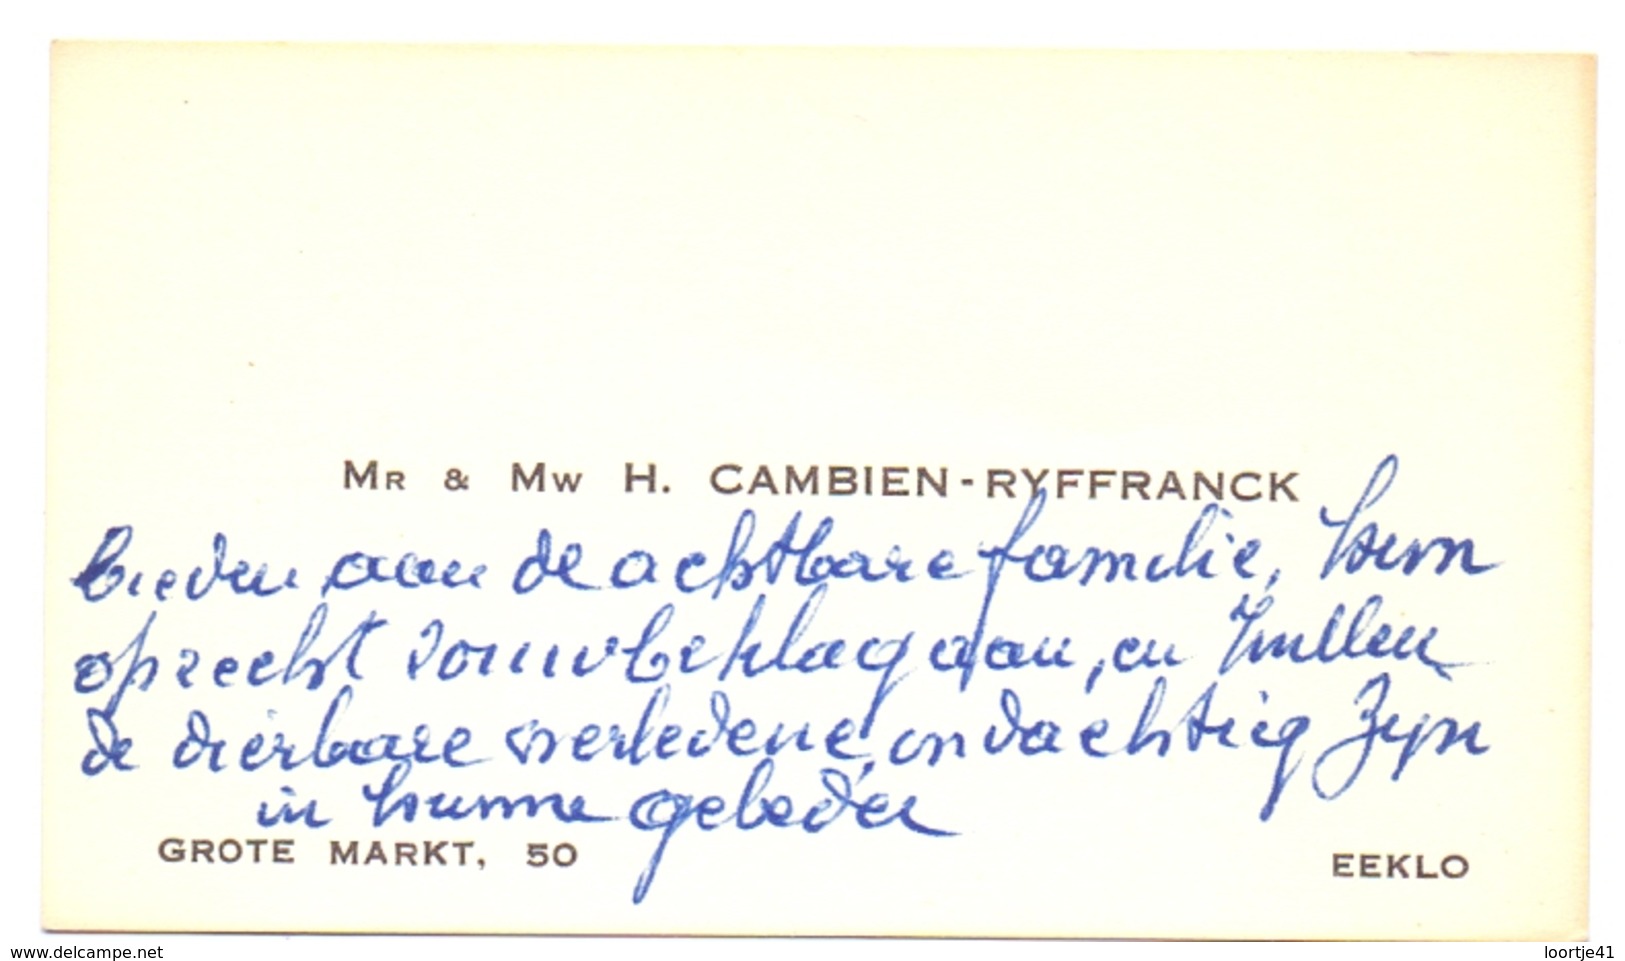 MR & MW H. CAMBIEN-RYFFRANCK
bieden aan de achtbare familie, hun
oprecht rouwbeklag aan, en zullen
de dierbare overledene, ondachtig zijn
in hunne gebeden
GROTE MARKT, 50 EEKLO
www.delcampe.net loortje41